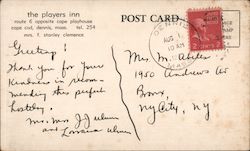 the players inn
route 6 opposite cape playhouse
cape cod, dennis, mass. tel. 254
mrs. f. stanley clemence
POST CARD
DENNIS
AUG 1
10 AM
MASS
Greetings!
Thank you for your
kindness in recom-
mending this perfect
hostelry.
Mr. Mrs J J
and Lorraine
Mrs. M.
1950 Andrews Av
Bronx,
NY City, NY